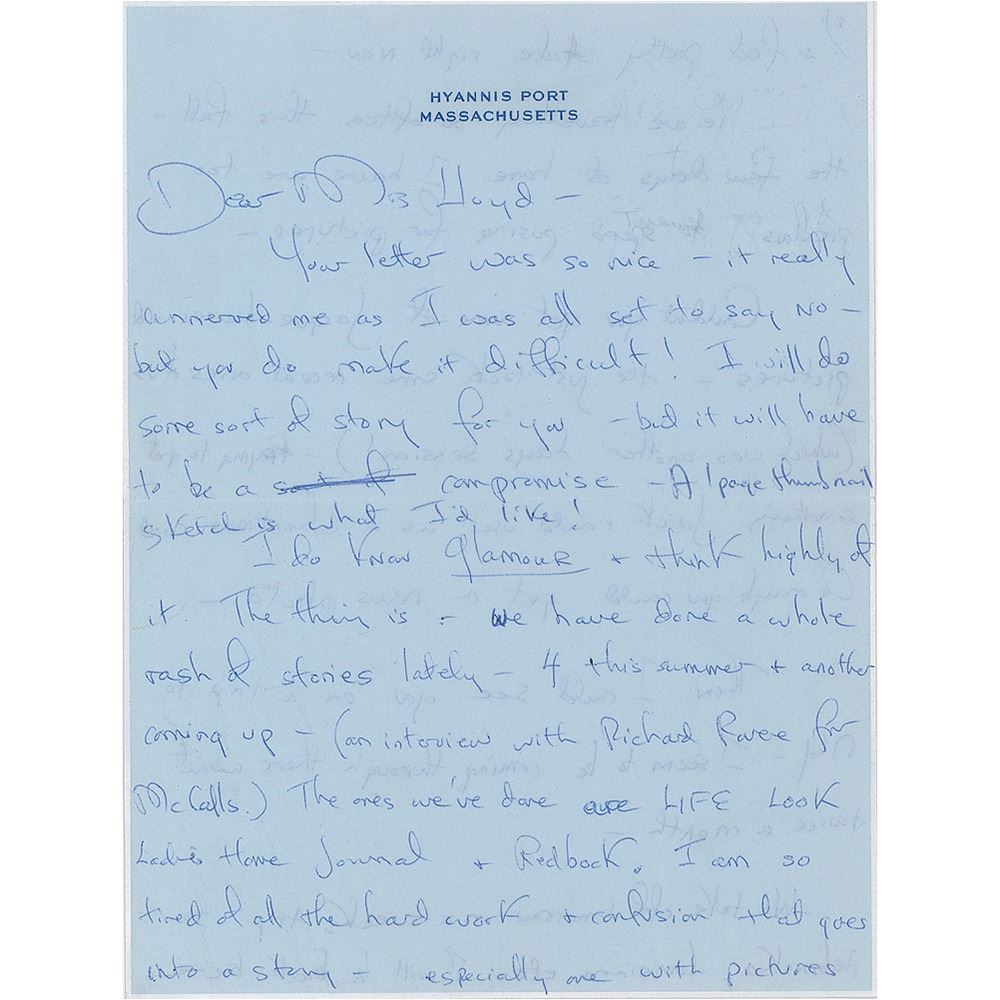 HYANNIS PORT
MASSACHUSETTS
Dear Miss Lloyd –
Your letter was so nice – it really
unnerved me as I was all set to say NO –
but you do make it difficult! I will do
some sort of story for you – but it will have
to be a sort of compromise – A 1 page thumbnail
sketch is what I'd like!
I do know Glamour + think highly of
it. The thing is – we have done a whole
rash of stories lately – 4 this summer + another
coming up – (an interview with Richard for
McCalls.) The ones we've done are LIFE LOOK
Ladies Home Journal + Redbook. I am so
tired of all the hard work + confusion that goes
into a story – especially one with pictures